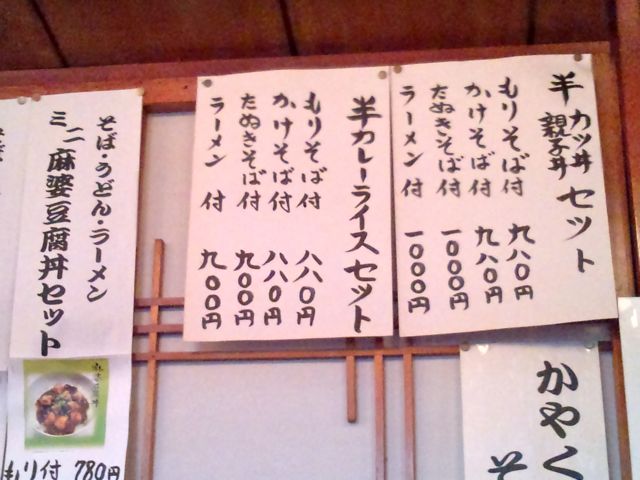 半 カツ丼 親子丼 セット
もりそば付 九八〇円
かけそば付 九八〇円
たぬきそば付 一〇〇〇円
ラーメン付 一〇〇〇円
半カレーライスセット
もりそば付 八八〇円
かけそば付 八八〇円
たぬきそば付 九〇〇円
ラーメン付 九〇〇円
そば・うどん・ラーメン
ミニ麻婆豆腐丼セット
もり付 780円
かやく
そ